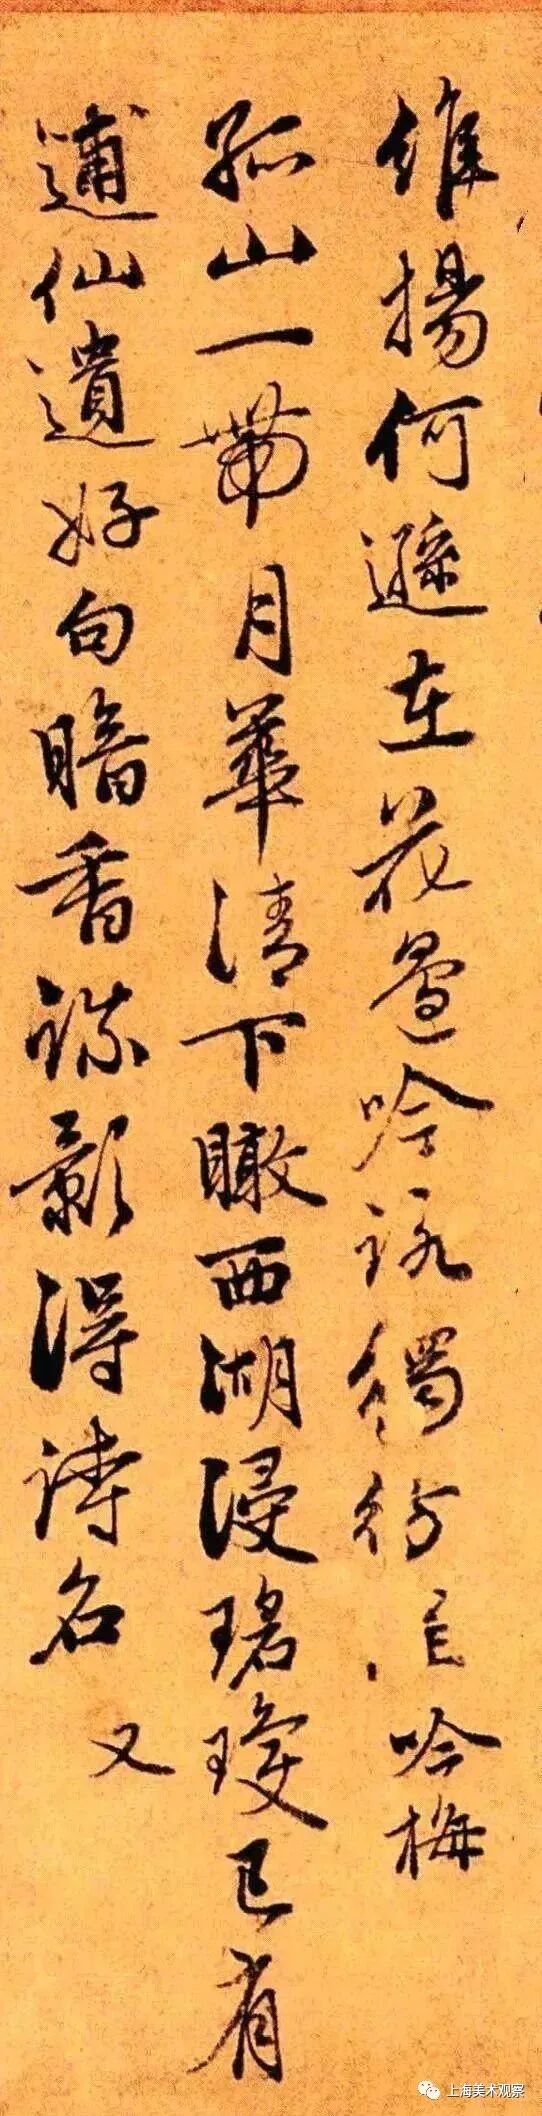 維揚何遜在花邊吟詠獨彷吟梅
孤山一帶月華清下瞰西湖浸碧瓊已有
逋仙遺好句暗香疎影得詩名 又
上海美术观察